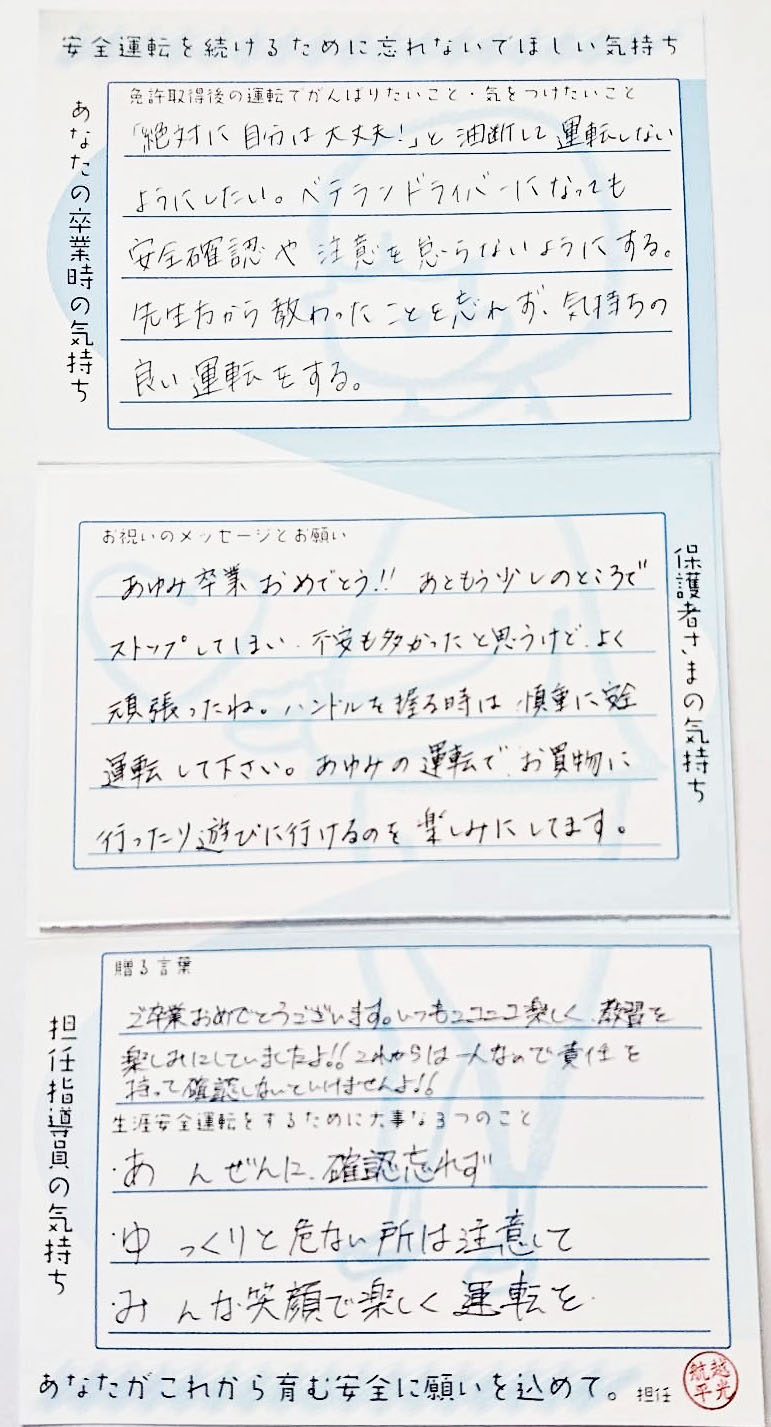 安全運転を続けるために忘れないでほしい気持ち
あなたの卒業時の気持ち
免許取得後の運転でがんばりたいこと・気をつけたいこと
「絶対に自分は大丈夫!」と油断して運転しない
ようにしたい。ベテランドライバーになっても
安全確認や注意を怠らないようにする。
先生方から教わったことを忘れず、気持ちの
良い運転をする。
保護者さまの気持ち
お祝いのメッセージとお願い
あゆみ卒業おめでとう!! あともう少しのところで
ストップしてしまい、不安も多かったと思うけど、よく
頑張ったね。ハンドルを握る時は慎重に安全
運転して下さい。あゆみの運転で、お買物に
行ったり遊びに行けるのを楽しみにしてます。
担任指導員の気持ち
贈る言葉
ご卒業おめでとうございます。いつもニコニコ楽しく、教習を
楽しみにしていましたよ!! これからは一人なので責任を
持って確認しないといけませんよ!!
生涯安全運転をするために大事な3つのこと
・あんぜんに、確認忘れず
・ゆっくりと危ない所は注意して
・みんな笑顔で楽しく運転を
あなたがこれから育む安全に願いを込めて。 担任
越光
航平